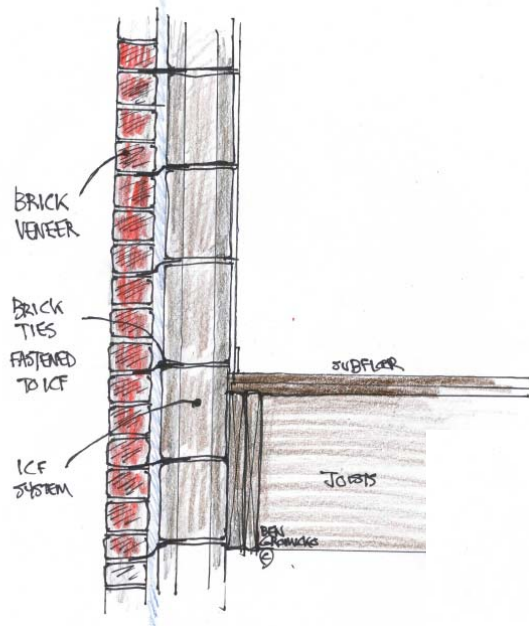 BRICK
VENEER
BRICK
TIES
FASTENED
TO ICF
ICF
SYSTEM
SUBFLOOR
JOISTS
BEN
©